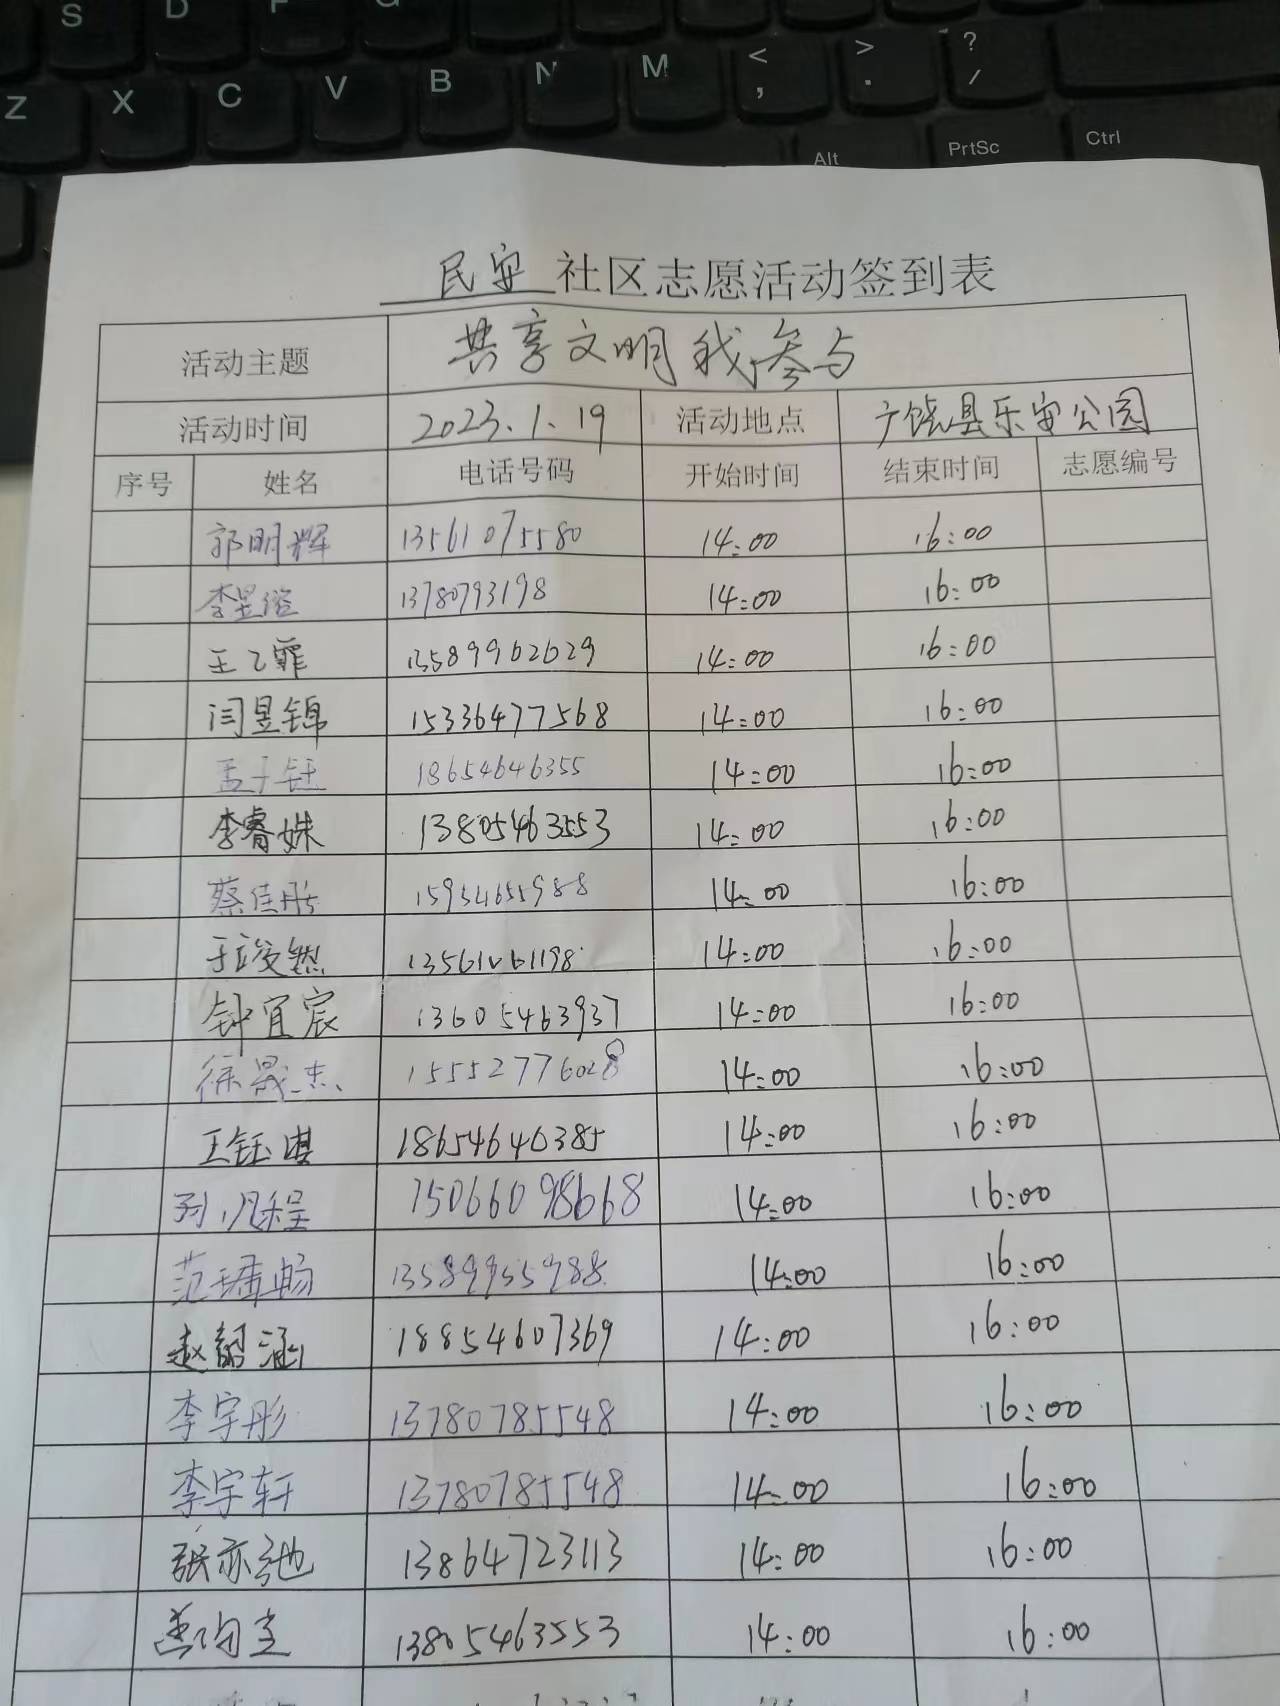 S D F G
Z X C V B N M < , > . ? /
Alt PrtSc Ctrl
民安 社区志愿活动签到表
活动主题 共享文明我参与
活动时间 2023.1.19 活动地点 广饶县乐安公园
序号 姓名 电话号码 开始时间 结束时间 志愿编号
郭明辉 13561075580 14:00 16:00
李昱 13780793198 14:00 16:00
王乙霏 13589962629 14:00 16:00
闫昱锦 15336477568 14:00 16:00
孟子钰 18654646355 14:00 16:00
李睿姝 13805463553 14:00 16:00
蔡佳彤 15954655988 14:00 16:00
于竣然 13561061198 14:00 16:00
钟宜宸 13605463937 14:00 16:00
徐晟杰 15552776028 14:00 16:00
王钰琪 18654640385 14:00 16:00
孙凡程 15066098668 14:00 16:00
范畅 13589955988 14:00 16:00
赵韵涵 18854607369 14:00 16:00
李宇彤 13780785548 14:00 16:00
李宇轩 13780785548 14:00 16:00
张亦弛 13864723113 14:00 16:00
13805463553 14:00 16:00